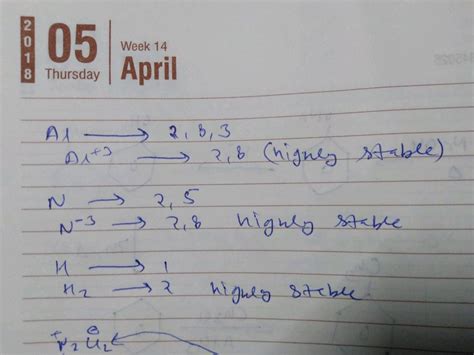 2018
05
Thursday
Week 14
April
Al → 2, 8, 3
Al+3 → 2, 8 (highly stable)
N → 2, 5
N-3 → 2, 8 highly stable
H → 1
H2 → 2 highly stable